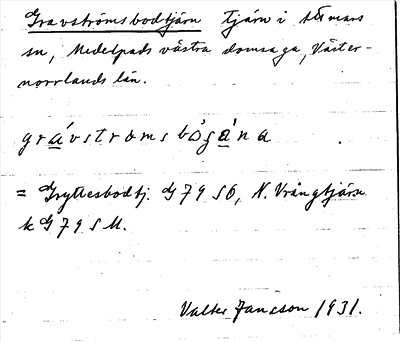 Gravströmsbodtjärn tjärn i Stömars
sn, Medelpads västra domsaga, Väster-
norrlands län.
gravstromsbogana
= Gryttesbodtj. G 79 S6, N. Vrångtjärn
k G 79 S M.
Valter Jansson 1931.